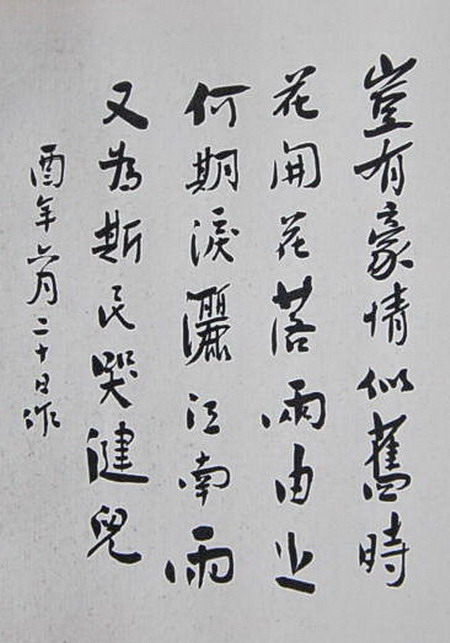 豈有豪情似舊時
花開花落兩由之
何期淚灑江南雨
又為斯民哭健兒
酉年六月二十日作